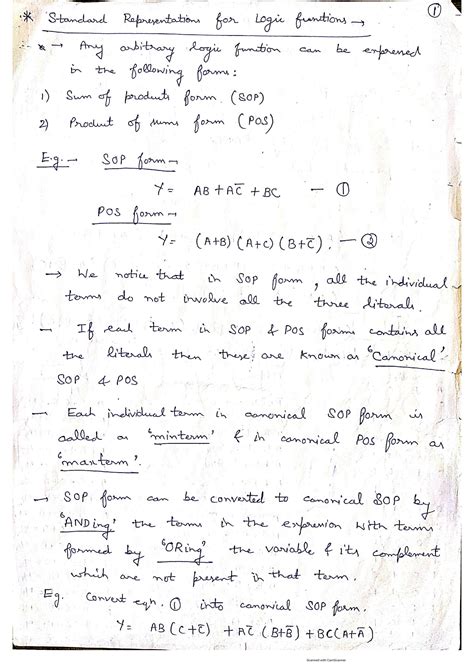 ①
* Standard Representations for Logic functions →
* → Any arbitrary logic function can be expressed
in the following forms:
1) Sum of products form (SOP)
2) Product of sums form (POS)
E.g. - SOP form →
Y = AB + AC̅ + BC — ①
POS form →
Y = (A+B) (A+C) (B+C̅). — ②
→ We notice that in SOP form, all the individual
terms do not involve all the three literals.
— If each term in SOP & POS forms contains all
the literals then these are known as 'Canonical'
SOP & POS
— Each individual term in canonical SOP form is
called as 'minterm' & in canonical POS form as
'maxterm'.
— SOP form can be converted to canonical SOP by
'ANDing' the terms in the expression with terms
formed by 'ORing' the variable & its complement
which are not present in that term.
Eg. Convert eqn. ① into canonical SOP form.
Y = AB (C+C̅) + AC̅ (B+B̅) + BC(A+A̅)
Scanned with CamScanner